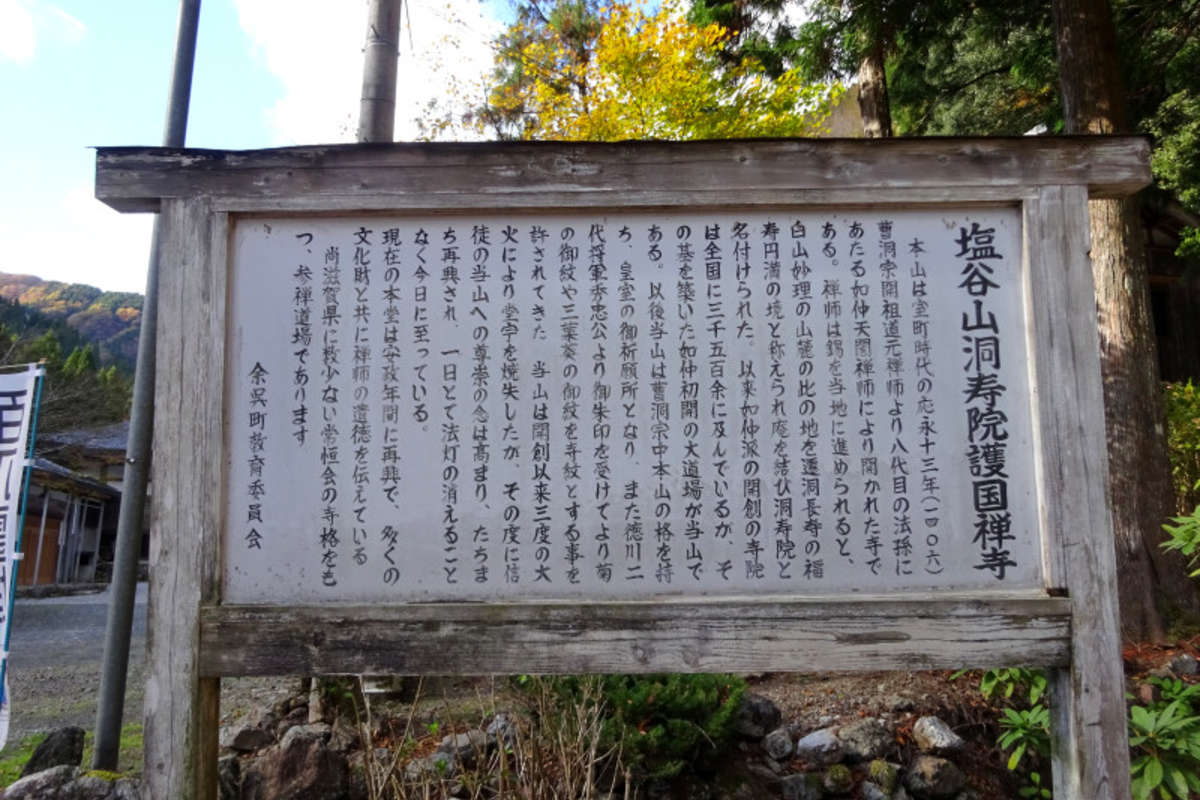 塩谷山洞寿院護国禅寺
本山は室町時代の応永十三年(一四〇六)
曹洞宗開祖道元禅師より八代目の法孫に
あたる如仲天誾禅師により開かれた寺で
ある。禅師は錫を当地に進められると、
白山妙理の山麓の比の地を透洞長寿の福
寿円満の境と称えられ庵を結び洞寿院と
名付けられた。以来如仲派の開創の寺院
は全国に三千五百余に及んでいるが、そ
の基を築いた如仲初開の大道場が当山で
ある。以後当山は曹洞宗中本山の格を持
ち、皇室の御祈願所となり、また徳川二
代将軍秀忠公より御朱印を受けてより菊
の御紋や三葉葵の御紋を寺紋とする事を
許されてきた 当山は開創以来三度の大
火により堂宇を焼失したが、その度に信
徒の当山への尊崇の念は高まり、たちま
ち再興され、一日とて法灯の消えること
なく今日に至っている。
現在の本堂は安政年間に再興で、多くの
文化財と共に禅師の遺徳を伝えている
尚滋賀県に数少ない常恒会の寺格をも
つ、参禅道場であります
余呉町教育委員会